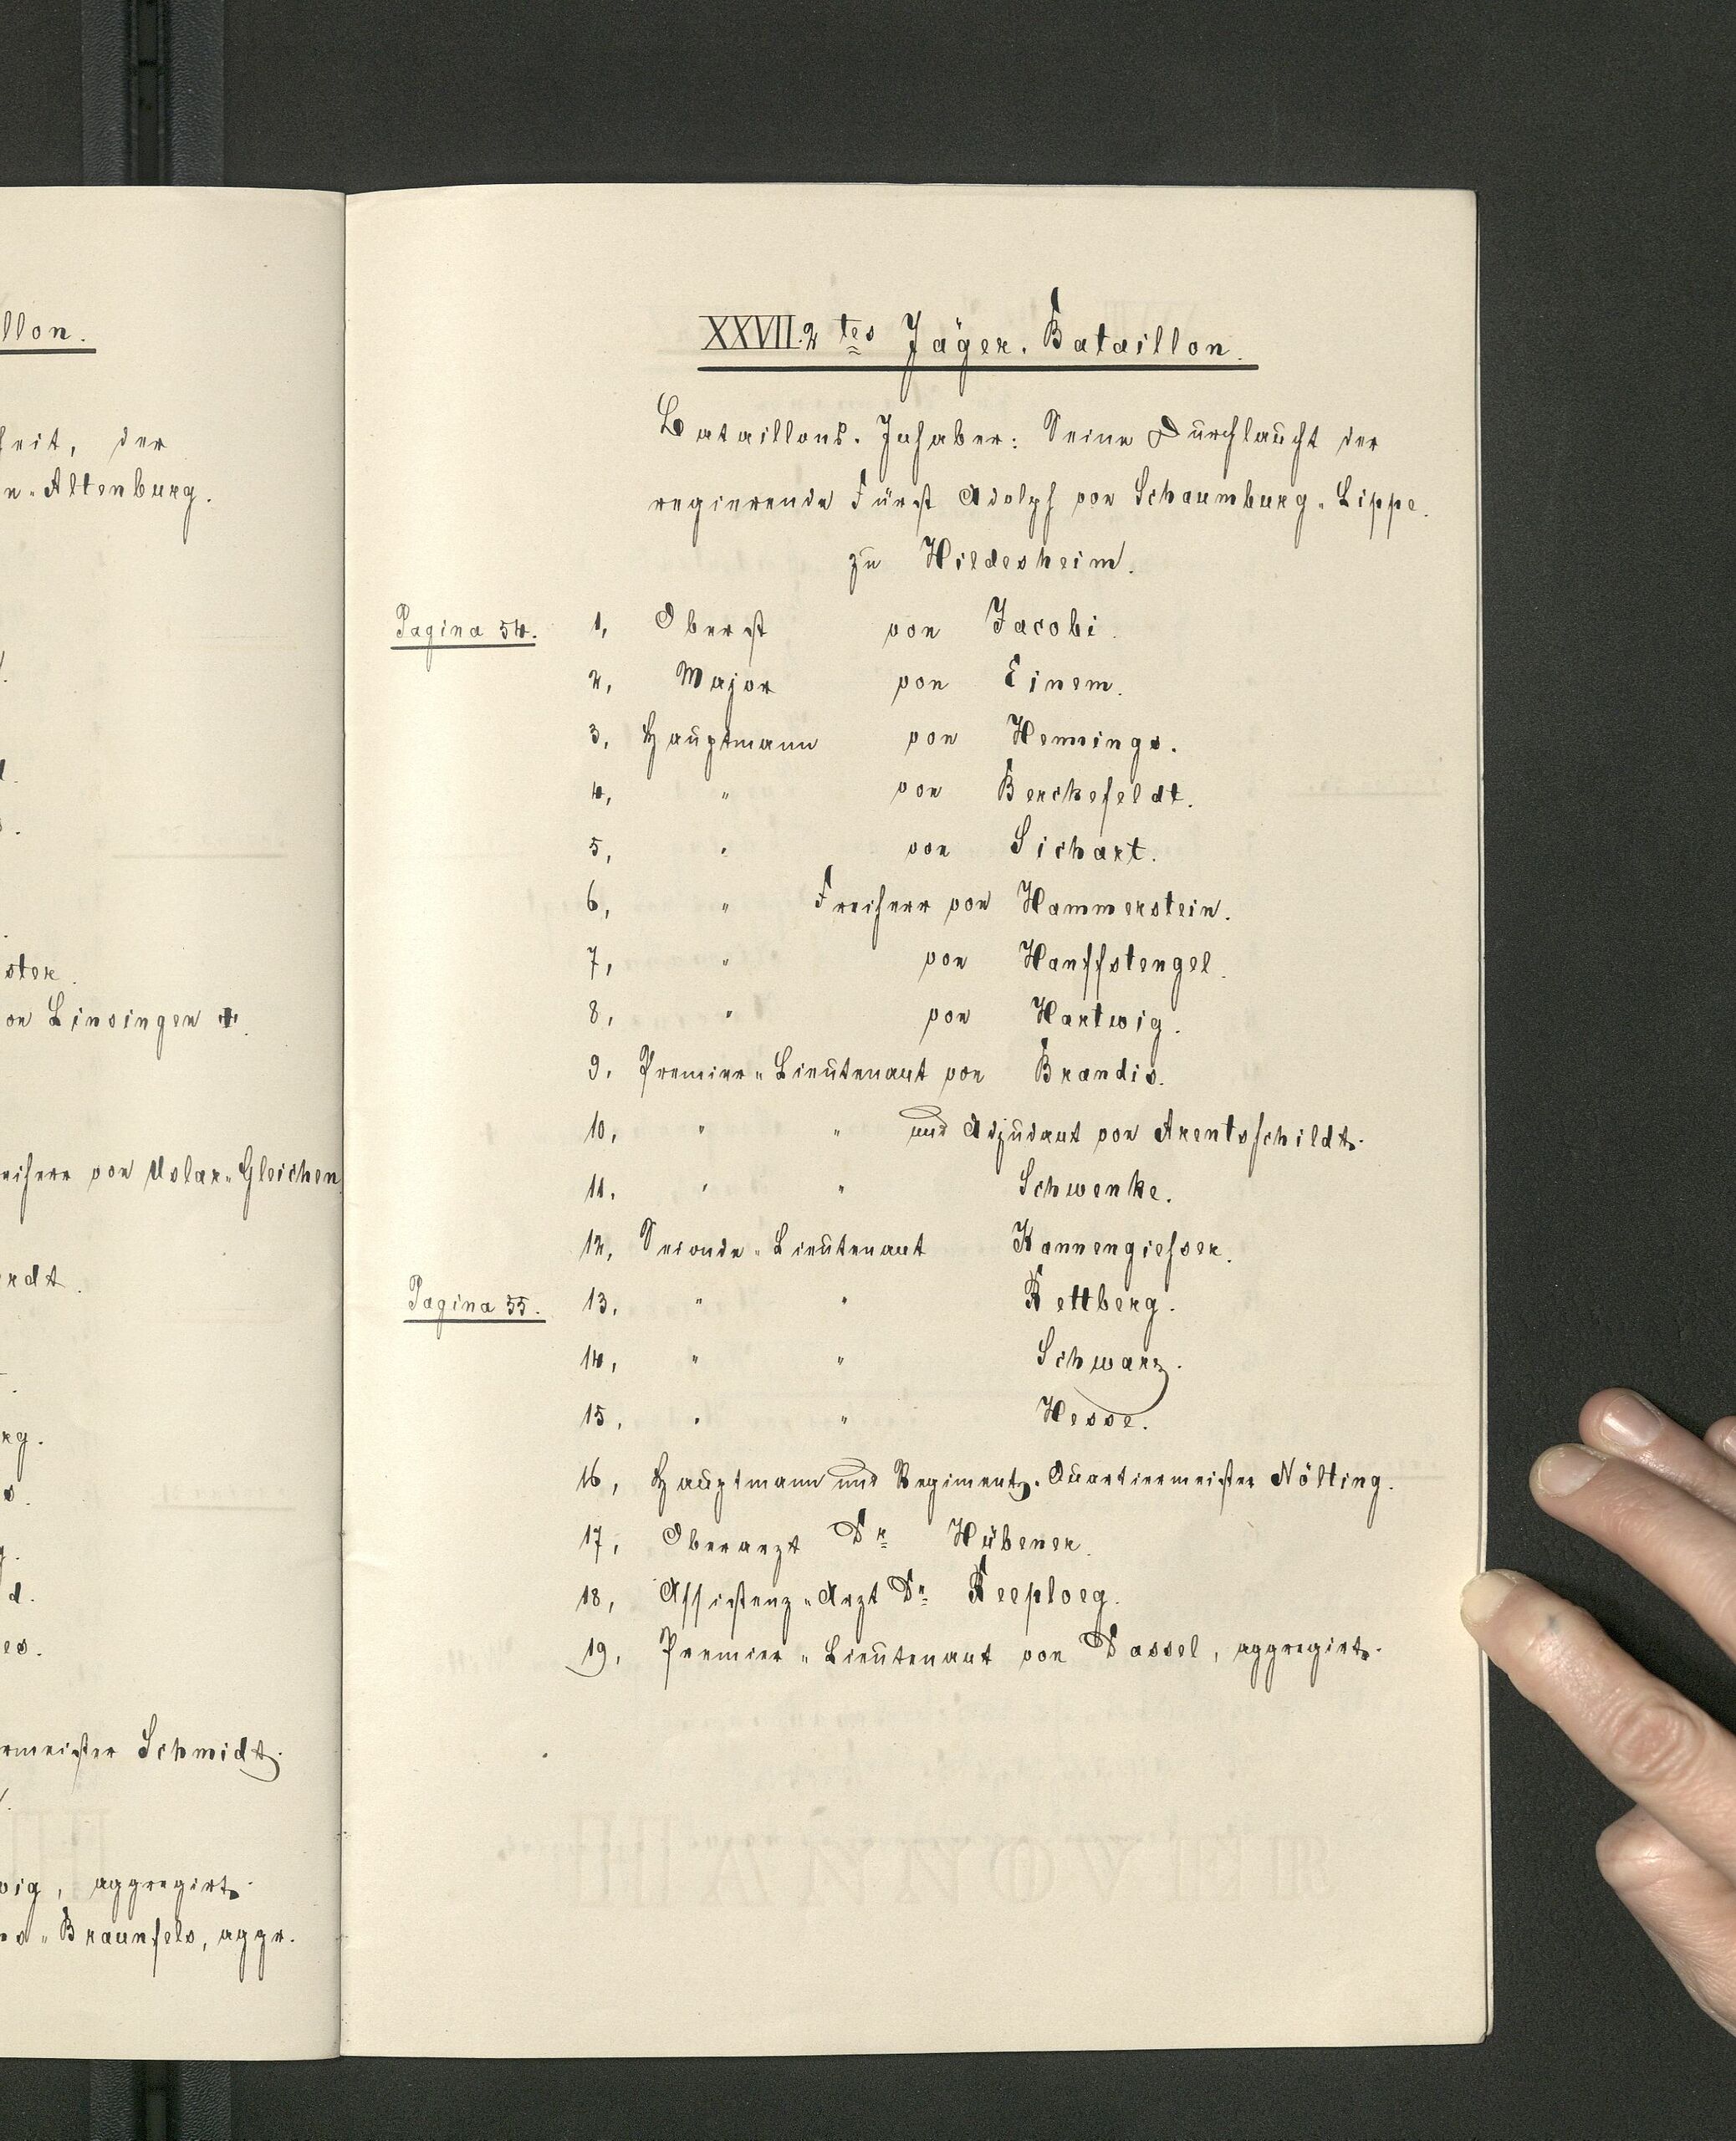 llon.
heit, der
n-Altenburg.
ster.
on Linsingen †.
reiherr von Uslar-Gleichen
rdt.
rg.
s.
g.
d.
es.
rmeister Schmidt.
wig, aggregirt.
s-Braunfels, aggr.
XXVII. 2tes Jäger-Bataillon.
Bataillons-Inhaber: Seine Durchlaucht der
regierende Fürst Adolph von Schaumburg-Lippe.
zu Hildesheim.
Pagina 54. 1, Oberst von Jacobi.
2, Major von Einem.
3, Hauptmann von Hennings.
4, " von Berckefeldt.
5, " von Sichart.
6, " Freiherr von Hammerstein.
7, " von Hanffstengel.
8, " von Hartwig.
9, Premier-Lieutenant von Brandis.
10, " " und Adjudant von Arentsschildt.
11, " " Schwenke.
12, Seconde-Lieutenant Kannengiesser.
Pagina 55. 13, " " Rettberg.
14, " " Schwarz.
15, " " Hesse.
16, Hauptmann und Regiments-Quartiermeister Nölting.
17, Oberarzt Dr Hübener.
18, Assistenz-Arzt Dr
19, Premier-Lieutenant von Dassel, aggregirt.